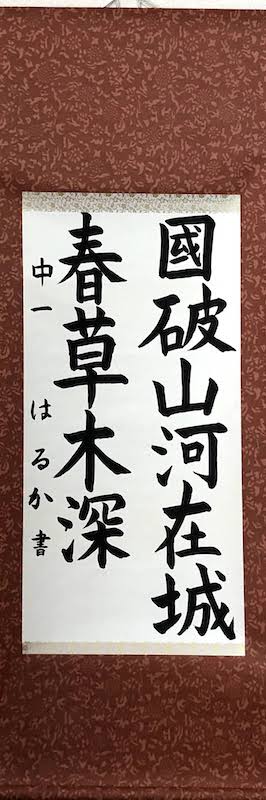 國破山河在城
春草木深
中一 はるか書